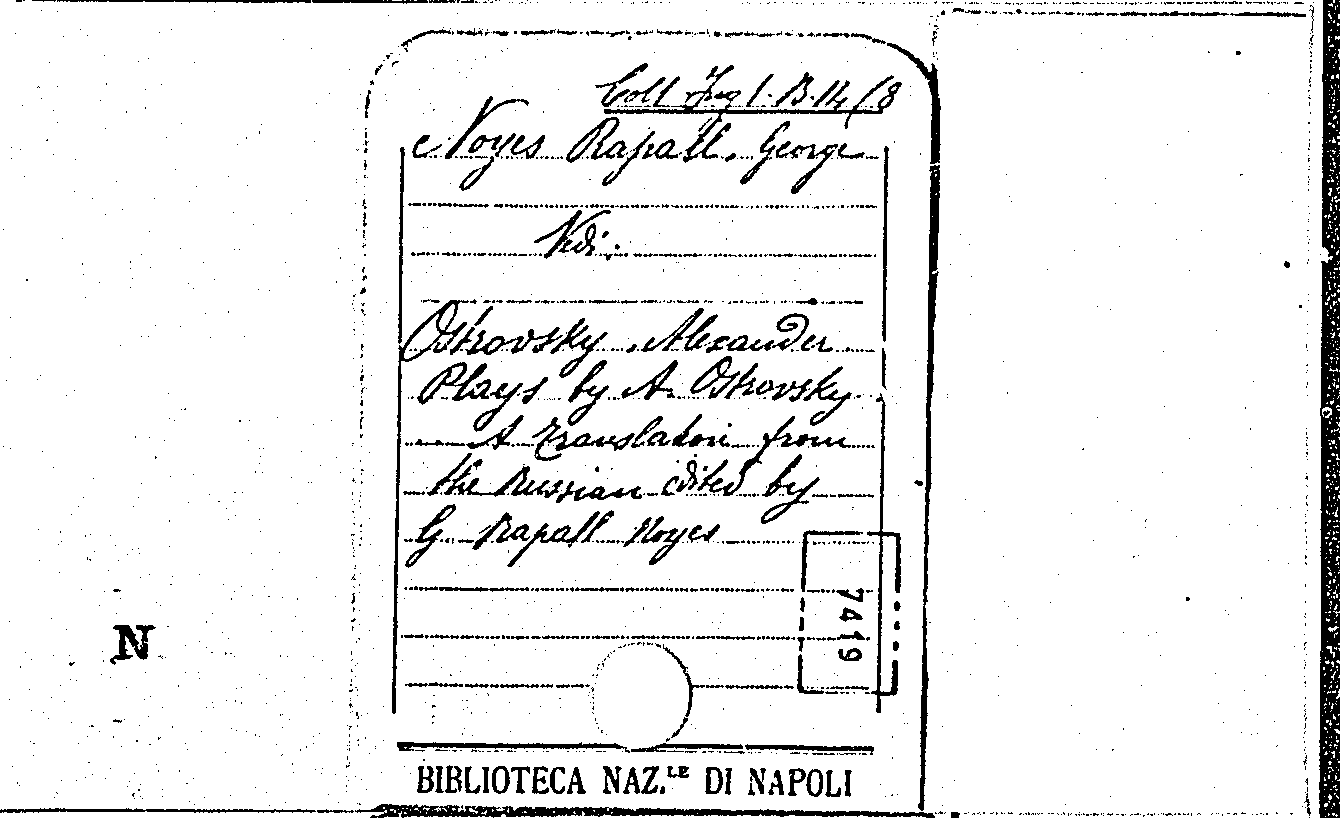 Coll Ing 1. B. 14 (8
Noyes Rapall, George
Vedi:
Ostrovsky Alexander
Plays by A. Ostrovsky
.... A translation from
the Russian edited by
G Rapall Noyes
7419
N
BIBLIOTECA NAZ.LE DI NAPOLI